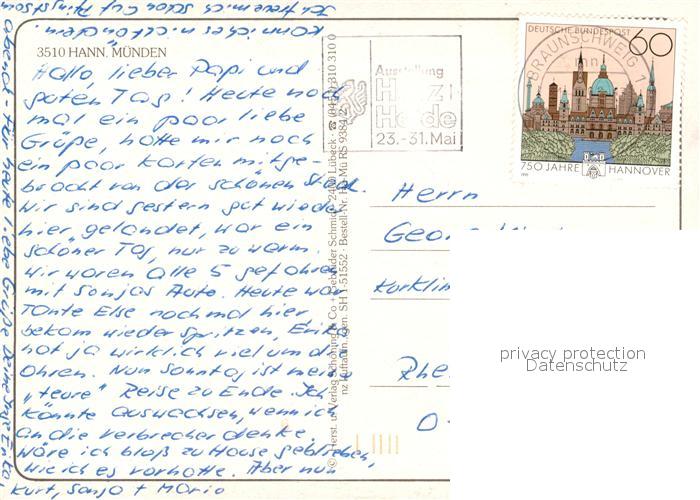 Ich freue mich schon auf Pfingstsonn
abend - für heute liebe Grüße Deine Inge, Erika,
kann ich es nicht ändern.
3510 HANN. MÜNDEN
Hallo, lieber Papi und
guten Tag! Heute noch
mal ein paar liebe
Grüße, hatte mir noch
ein paar Karten mitge-
bracht von der schönen Stadt.
Wir sind gestern gut wieder
hier gelandet, war ein
schöner Tag, nur zu warm.
Wir waren alle 5 gefahren
mit Sonjas Auto. Heute war
Tante Else nochmal hier,
bekam wieder Spritzen, Erika
hat ja wirklich viel um die
Ohren. Nun Sonntag ist meine
"teure" Reise zu Ende. Ich
könnte auswachsen, wenn ich
an die Verbrecher denke,
wäre ich bloß zu Hause geblieben,
wie ich es vorhatte. Aber nun
Kurt, Sonja + Mario
© Herst. u. Verlag Schöning & Co + Gebrüder Schmidt, 2400 Lübeck
Bestell-Nr. Ha Mü RS 9384/2
Ausstellung
Harz
Heide
23.-31. Mai
BRAUNSCHWEIG 1
DEUTSCHE BUNDESPOST
60
750 JAHRE HANNOVER
Herrn
Kurklin
Rhe
privacy protection
Datenschutz